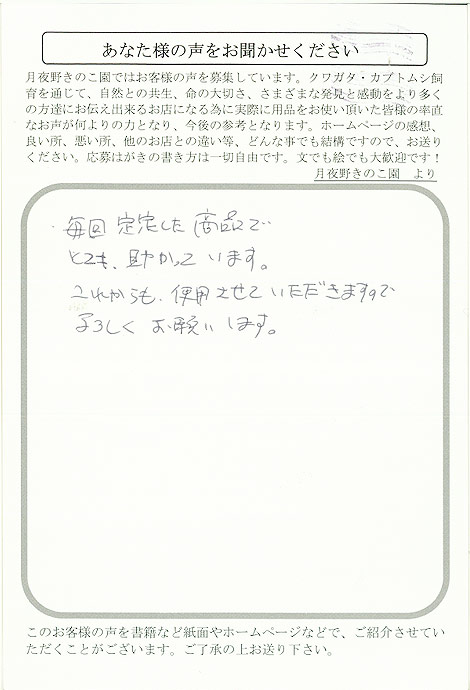 あなた様の声をお聞かせください
月夜野きのこ園ではお客様の声を募集しています。クワガタ・カブトムシ飼
育を通じて、自然との共生、命の大切さ、さまざまな発見と感動をより多く
の方達にお伝え出来るお店になる為に実際に用品をお使い頂いた皆様の率直
なお声が何よりの力となり、今後の参考となります。ホームページの感想、
良い所、悪い所、他のお店との違い等、どんな事でも結構ですので、お送り
ください。応募はがきの書き方は一切自由です。文でも絵でも大歓迎です！
月夜野きのこ園　より
毎回 定定した商品で
とても、助かっています。
これからも、使用させていただきますので
よろしくお願いします。
このお客様の声を書籍など紙面やホームページなどで、ご紹介させてい
ただくことがございます。ご了承の上お送り下さい。